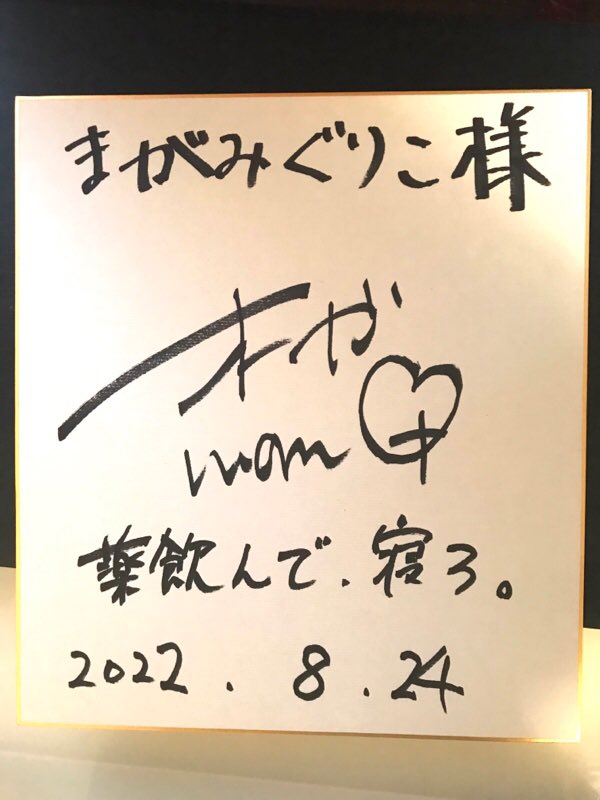 まがみぐりこ様
薬飲んで、寝ろ。
2022.8.24